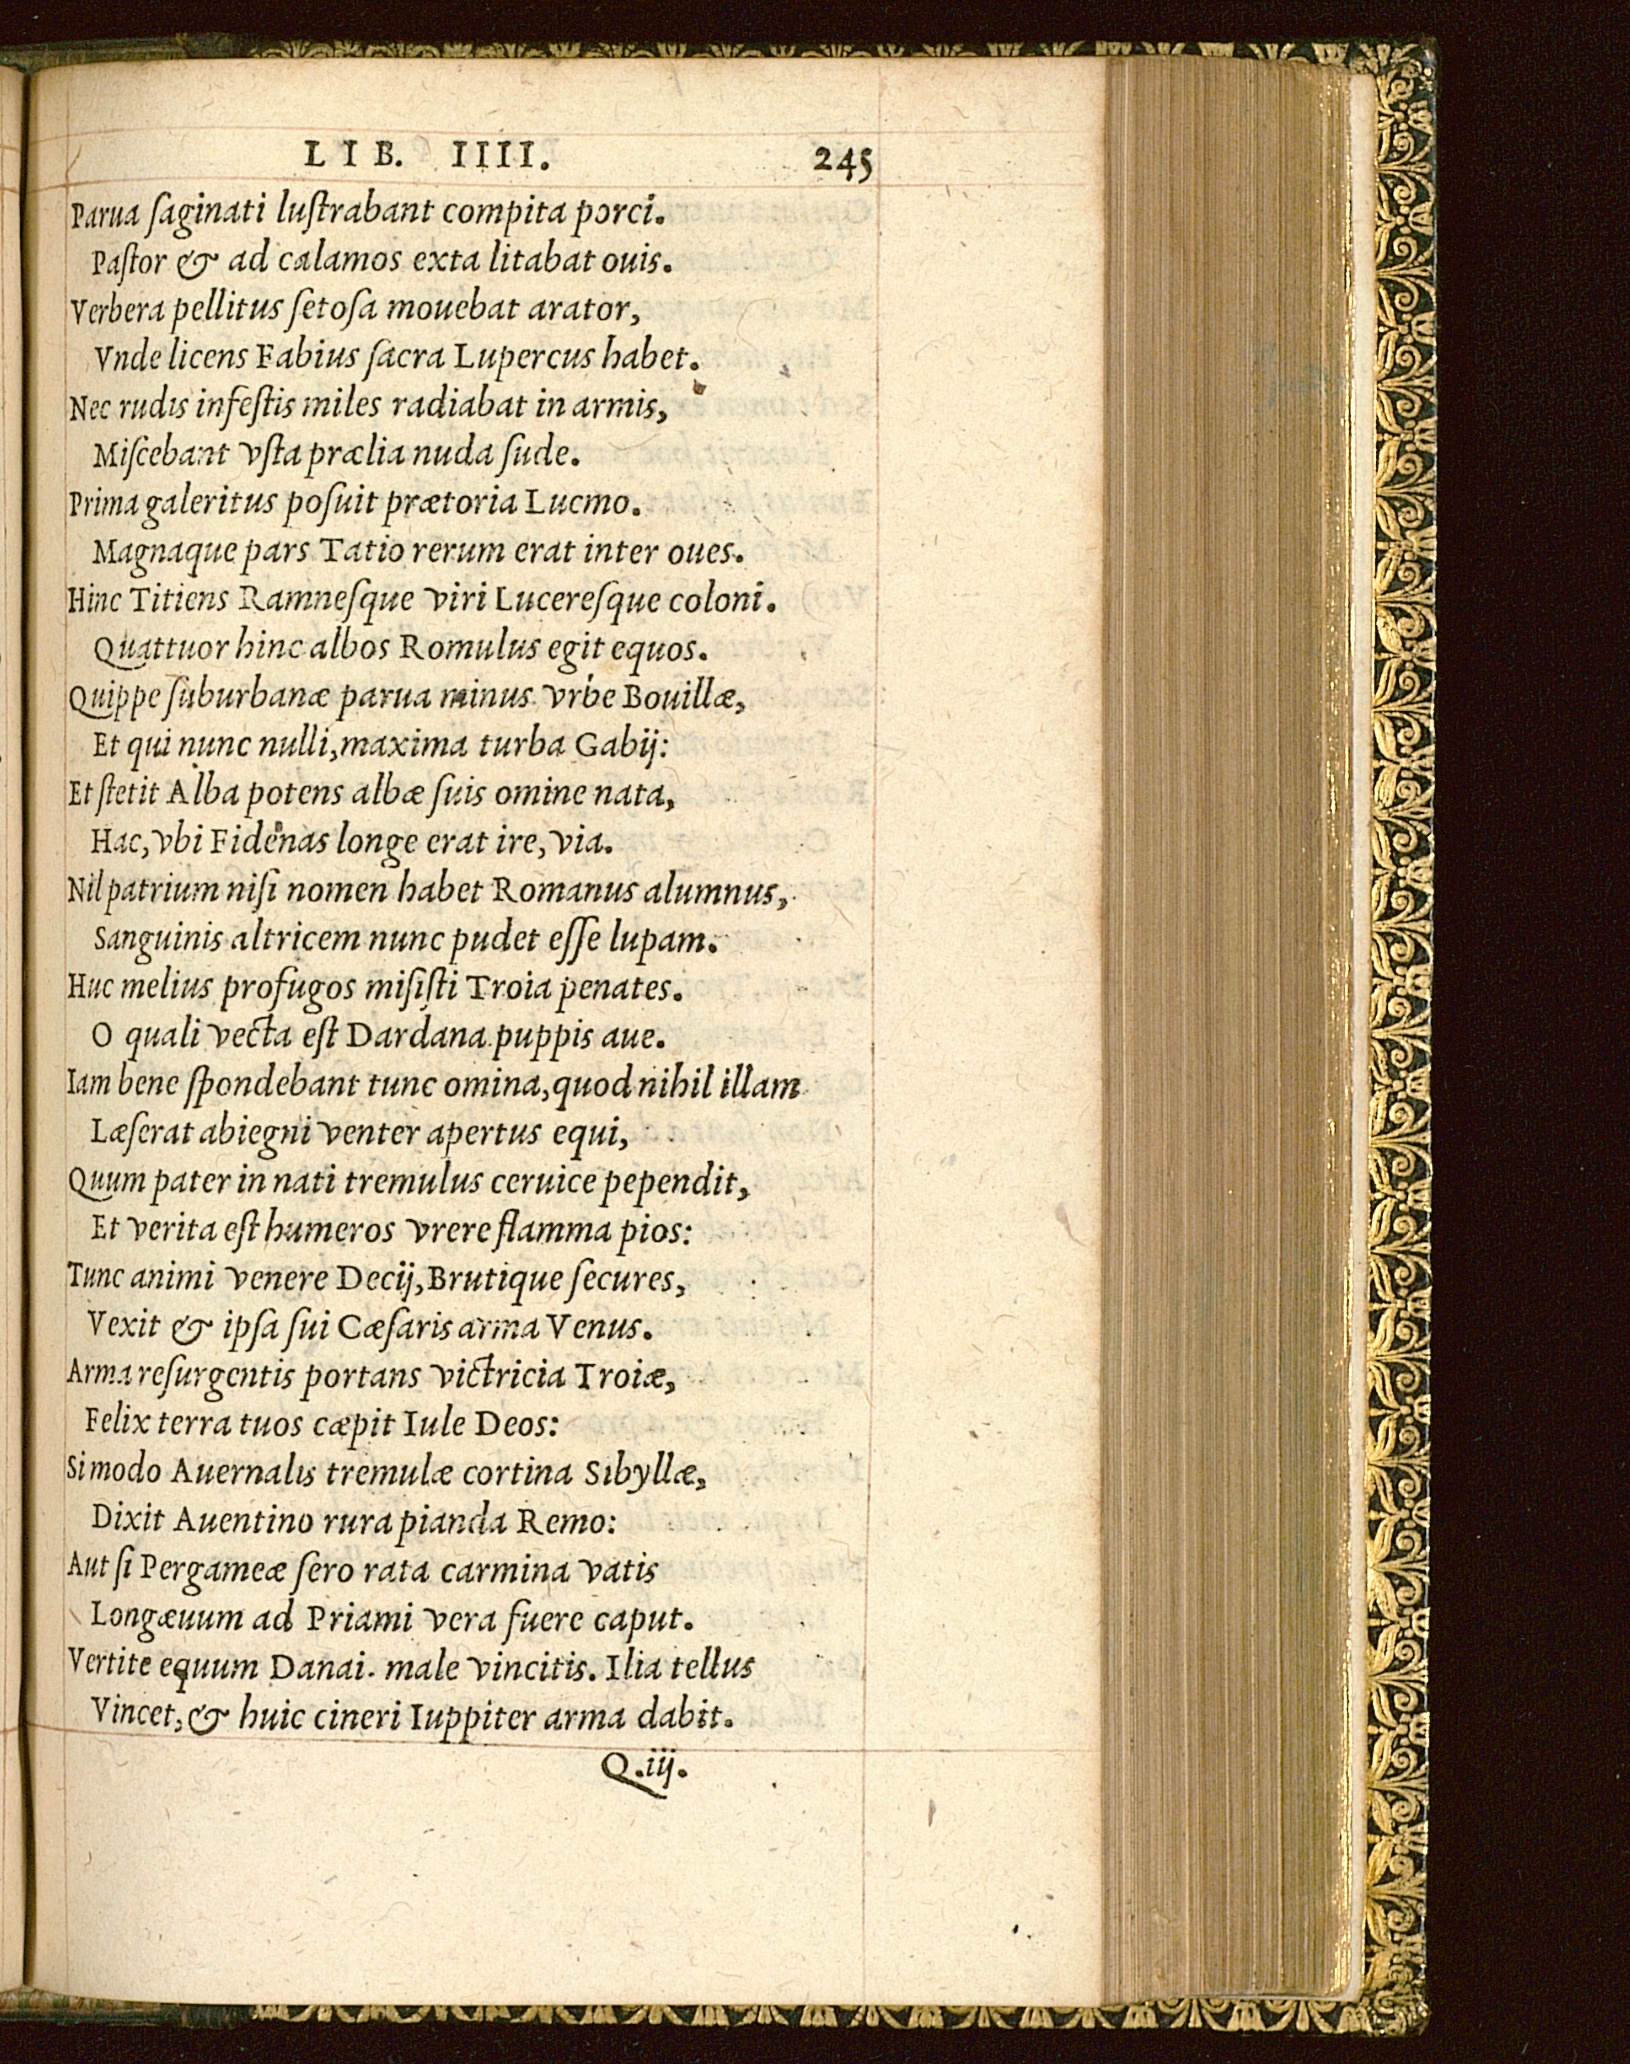 LIB. IIII. 245
Parua ſaginati luſtrabant compita porci.
Paſtor & ad calamos exta litabat ouis.
Verbera pellitus ſetoſa mouebat arator,
Vnde licens Fabius ſacra Lupercus habet.
Nec rudis infeſtis miles radiabat in armis,
Miſcebant vſta prælia nuda ſude.
Prima galeritus poſuit prætoria Lucmo.
Magnaque pars Tatio rerum erat inter oues.
Hinc Titiens Ramneſque viri Lucereſque coloni.
Quattuor hinc albos Romulus egit equos.
Quippe ſuburbanæ parua minus vrbe Bouillæ,
Et qui nunc nulli, maxima turba Gabij:
Et ſtetit Alba potens albæ ſuis omine nata,
Hac, vbi Fidenas longe erat ire, via.
Nil patrium niſi nomen habet Romanus alumnus,
Sanguinis altricem nunc pudet eſſe lupam.
Huc melius profugos miſiſti Troia penates.
O quali vecta eſt Dardana puppis aue.
Iam bene ſpondebant tunc omina, quod nihil illam
Læſerat abiegni venter apertus equi,
Quum pater in nati tremulus ceruice pependit,
Et verita eſt humeros vrere flamma pios:
Tunc animi venere Decij, Brutique ſecures,
Vexit & ipſa ſui Cæſaris arma Venus.
Arma reſurgentis portans victricia Troiæ,
Felix terra tuos cæpit Iule Deos:
Si modo Auernalis tremulæ cortina Sibyllæ,
Dixit Auentino rura pianda Remo:
Aut ſi Pergameæ ſero rata carmina vatis
Longæuum ad Priami vera fuere caput.
Vertite equum Danai. male vincitis. Ilia tellus
Vincet, & huic cineri Iuppiter arma dabit.
Q.iij.